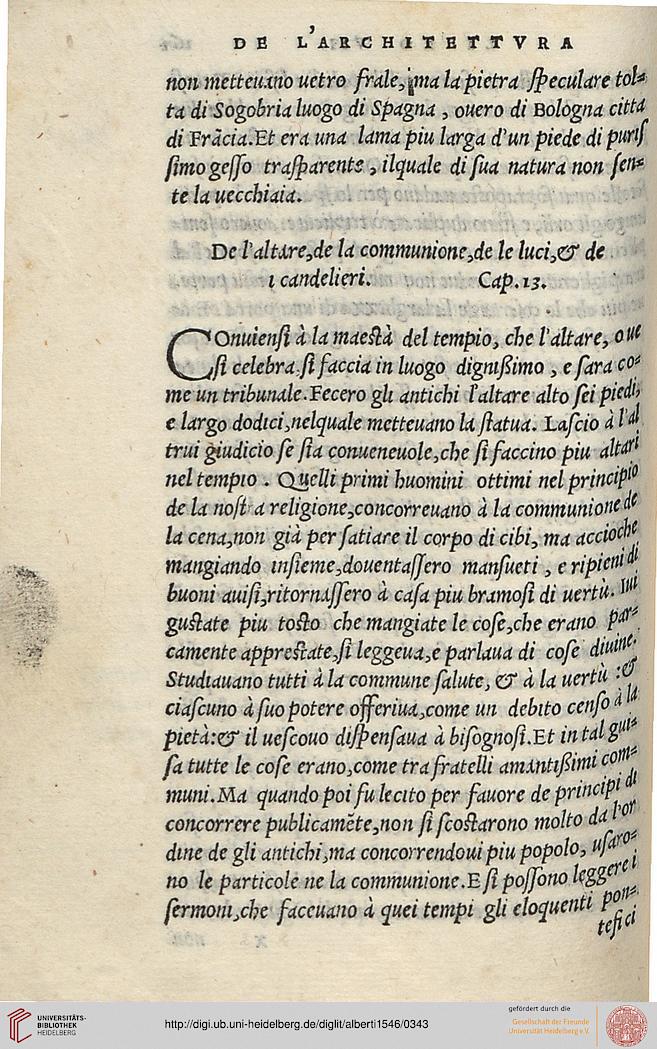 DE L'ARCHITETTVRA
non metteuano uetro frale, ma la pietra ſpeculare tol=
ta di Sogobria luogo di Spagna , ouero di Bologna citta
di Frãcia.Et era una lama piu larga d'un piede di puriſ
ſimo geſſo traſparente , ilquale di ſua natura non ſen=
te la uecchiaia.
De l'altare,de la communione,de le luci,& de
i candelieri. Cap.13.
COnuienſi à la maeſtà del tempio, che l'altare, oue
ſi celebra.ſi faccia in luogo digniſſimo , e ſara co=
me un tribunale.Fecero gli antichi l'altare alto ſei piedi,
e largo dodici,nelquale metteuano la ſtatua. Laſcio à l'al
trui giudicio ſe ſia conueneuole,che ſi faccino piu altari
nel tempio . Quelli primi huomini ottimi nel principio
de la noſtra religione,concorreuano à la communione de
la cena,non già per ſatiare il corpo di cibi, ma accioche
mangiando inſieme,douentaſſero manſueti , e ripieni di
buoni auiſi,ritornaſſero à caſa piu bramoſi di uertù. Iui
guſtate piu toſto che mangiate le coſe,che erano par=
camente appreſtate,ſi leggeua,e parlaua di coſe diuine.
Studiauano tutti à la commune ſalute, & à la uertù :&
ciaſcuno à ſuo potere offeriua,come un debito cenſo à la
pietà:& il ueſcouo diſpenſaua à biſognoſi.Et in tal gui=
ſa tutte le coſe erano,come tra fratelli amantiſſimi com=
muni.Ma quando poi fu lecito per fauore de principi di
concorrere publicamẽte,non ſi ſcoſtarono molto da l'or
dine de gli antichi,ma concorrendoui piu popolo, uſaro=
no le particole ne la communione.E ſi poſſono leggere i
ſermoni,che faceuano à quei tempi gli eloquenti pon=
tefici
UNIVERSITÄTS-
BIBLIOTHEK
HEIDELBERG
http://digi.ub.uni-heidelberg.de/diglit/alberti1546/0343
gefördert durch die
Gesellschaft der Freunde
Universität Heidelberg e.V.